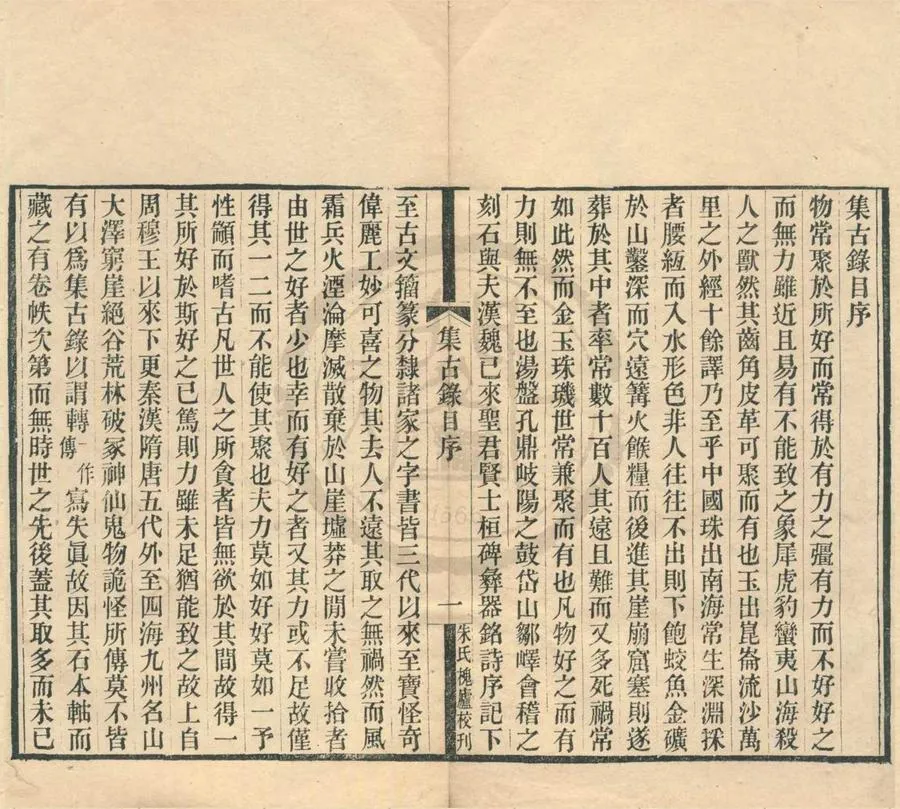 集古錄目序
物常聚於所好而常得於有力之彊有力而不好好之
而無力雖近且易有不能致之象犀虎豹蠻夷山海殺
人之獸然其齒角皮革可聚而有也玉出崑崙流沙萬
里之外經十餘譯乃至乎中國珠出南海常生深淵採
者腰絙而入水形色非人往往不出則下飽蛟魚金礦
於山鑿深而穴遠篝火餱糧而後進其崖崩窟塞則遂
葬於其中者率常數十百人其遠且難而又多死禍常
如此然而金玉珠璣世常兼聚而有也凡物好之而有
力則無不至也湯盤孔鼎岐陽之鼓岱山鄒嶧會稽之
刻石與夫漢魏已來聖君賢士桓碑彝器銘詩序記下
集古錄目序
一
朱氏槐廬校刊
至古文籀篆分隸諸家之字書皆三代以來至寶怪奇
偉麗工妙可喜之物其去人不遠其取之無禍然而風
霜兵火湮淪摩滅散棄於山崖墟莽之閒未嘗收拾者
由世之好者少也幸而有好之者又其力或不足故僅
得其一二而不能使其聚也夫力莫如好好莫如一予
性顓而嗜古凡世人之所貪者皆無欲於其間故得一
其所好於斯好之已篤則力雖未足猶能致之故上自
周穆王以來下更秦漢隋唐五代外至四海九州名山
大澤窮崖絕谷荒林破冢神仙鬼物詭怪所傳莫不皆
有以爲集古錄以謂轉一作傳寫失眞故因其石本軸而
藏之有卷帙次第而無時世之先後蓋其取多而未已